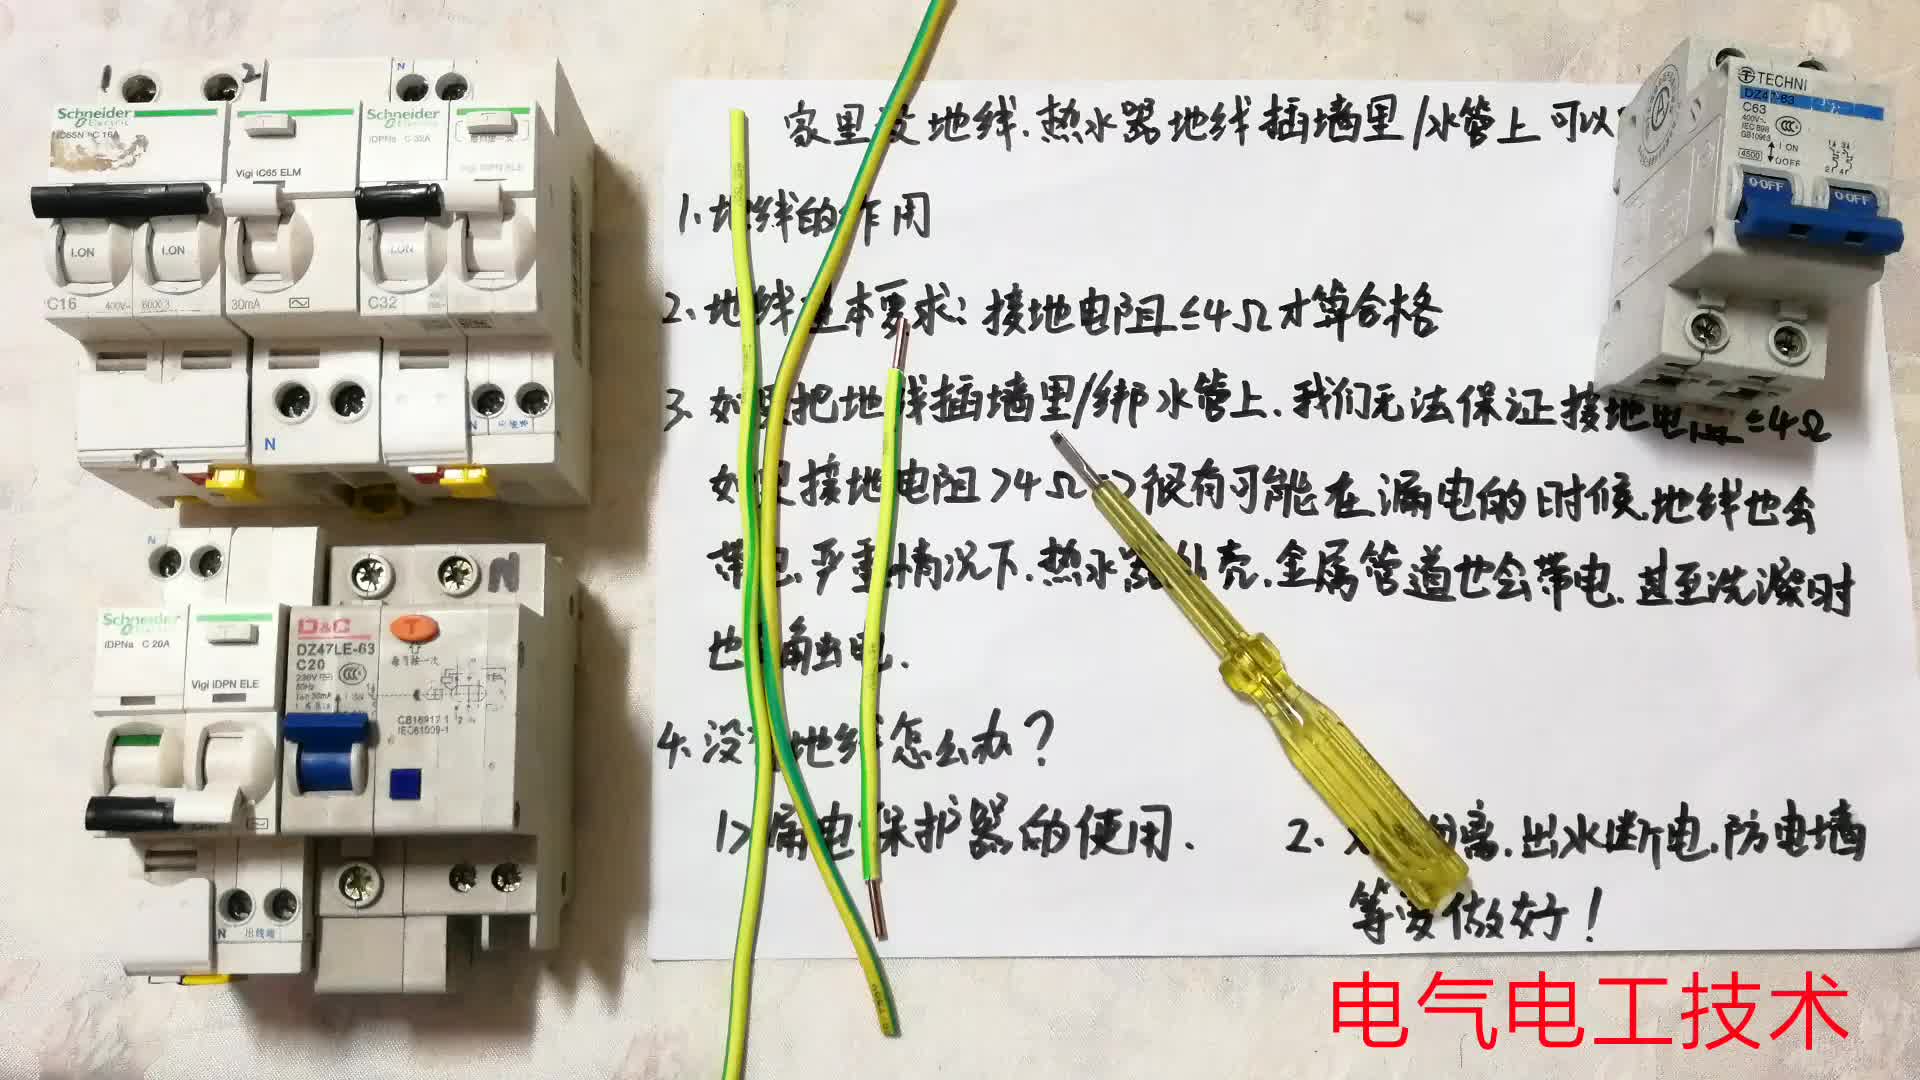 家里没地线.热水器地线插墙里/水管上可以
1.地线的作用
2.地线基本要求:接地电阻≤4Ω才算合格
3.如果把地线插墙里/绑水管上.我们无法保证接地电阻≤4Ω
如果接地电阻>4Ω=>很有可能在漏电的时候.地线也会
带电.严重情况下.热水器外壳.金属管道也会带电.甚至洗澡时
也 角出电.
4.没有地线怎么办?
1>漏电保护器的使用.
2. 离.出水断电.防电墙
等要做好!
电气电工技术
1 2
N
Schneider
Electric
iC65N C 16A
Vigi iC65 ELM
Schneider
Electric
iDPNa C 32A
Vigi iDPN ELE
I.ON
I.ON
I.ON
C16
400V~
6000 3
30mA
C32
N
N
N
Schneider
Electric
iDPNa C 20A
Vigi iDPN ELE
N 出线端
N
D&C
DZ47LE-63
C20
230V
50Hz
T
每月按一次
GB16917.1
IEC61009-1
TECHNI
DZ47-63
C63
400V~
IEC 898
GB10963
4500
I ON
O OFF
O·OFF
O·OFF